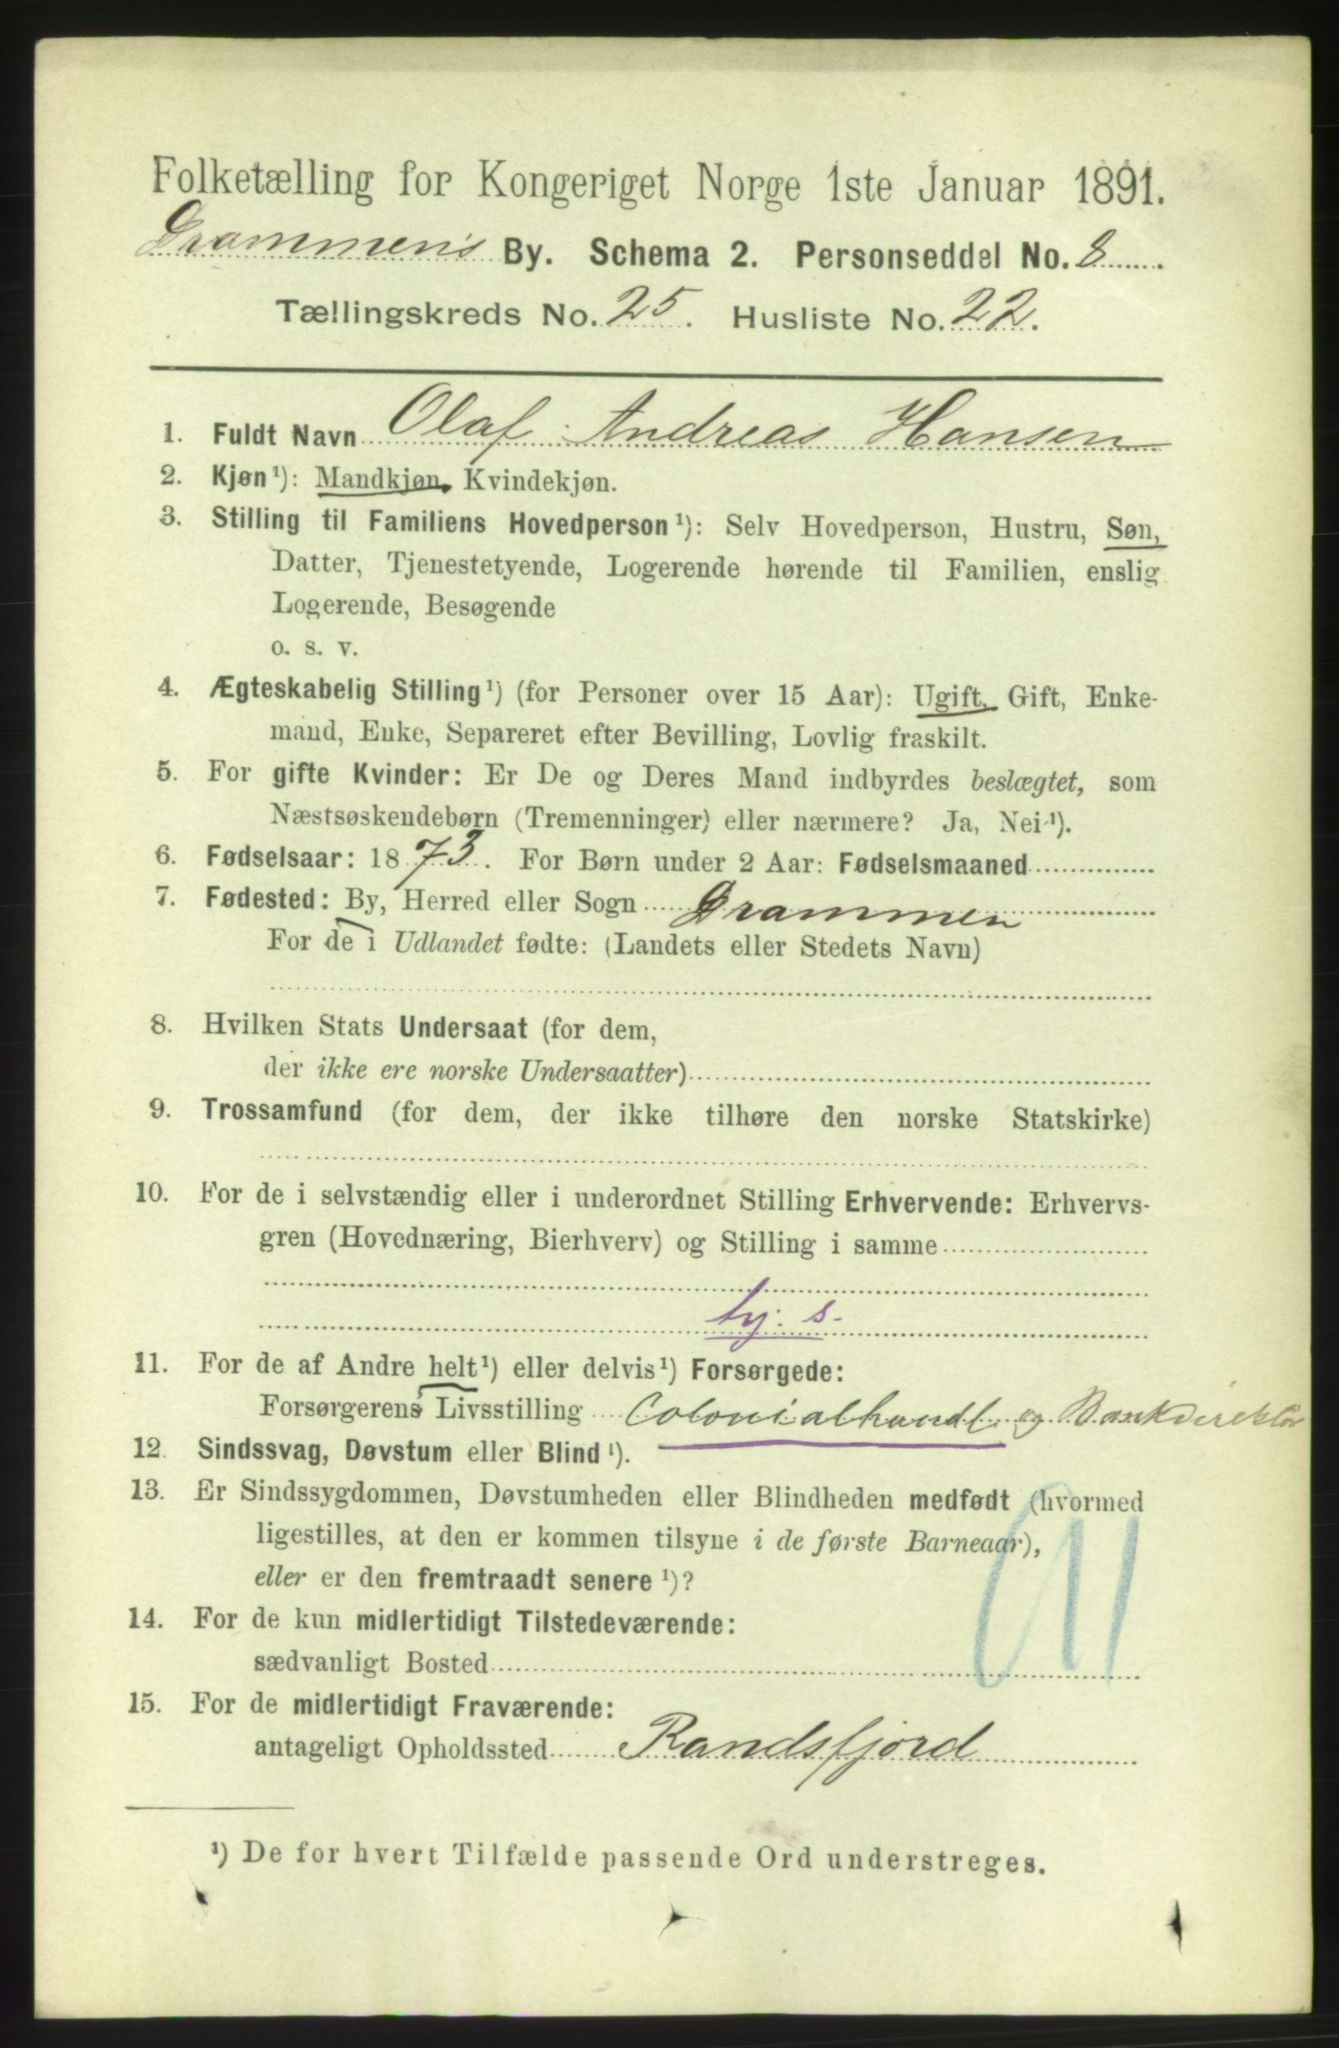 Folketælling for Kongeriget Norge 1ste Januar 1891.
Drammens By. Schema 2. Personseddel No. 8
Tællingskreds No. 25. Husliste No. 22.
1. Fuldt Navn Olaf Andreas Hansen
2. Kjøn¹): Mandkjøn, Kvindekjøn.
3. Stilling til Familiens Hovedperson¹): Selv Hovedperson, Hustru, Søn,
Datter, Tjenestetyende, Logerende hørende til Familien, enslig
Logerende, Besøgende
o. s. v.
4. Ægteskabelig Stilling¹) (for Personer over 15 Aar): Ugift, Gift, Enke-
mand, Enke, Separeret efter Bevilling, Lovlig fraskilt.
5. For gifte Kvinder: Er De og Deres Mand indbyrdes beslægtet, som
Næstsøskendebørn (Tremenninger) eller nærmere? Ja, Nei¹).
6. Fødselsaar: 1873. For Børn under 2 Aar: Fødselsmaaned
7. Fødested: By, Herred eller Sogn Drammen
For de i Udlandet fødte: (Landets eller Stedets Navn)
8. Hvilken Stats Undersaat (for dem,
der ikke ere norske Undersaatter)
9. Trossamfund (for dem, der ikke tilhøre den norske Statskirke)
10. For de i selvstændig eller i underordnet Stilling Erhvervende: Erhvervs-
gren (Hovednæring, Bierhverv) og Stilling i samme
ty: s.
11. For de af Andre helt¹) eller delvis¹) Forsørgede:
Forsørgerens Livsstilling Colonialhandl. og Bankdirektør
12. Sindssvag, Døvstum eller Blind¹).
13. Er Sindssygdommen, Døvstumheden eller Blindheden medfødt (hvormed
ligestilles, at den er kommen tilsyne i de første Barneaar),
eller er den fremtraadt senere¹)?
14. For de kun midlertidigt Tilstedeværende:
sædvanligt Bosted
15. For de midlertidigt Fraværende:
antageligt Opholdssted Randsfjord
¹) De for hvert Tilfælde passende Ord understreges.